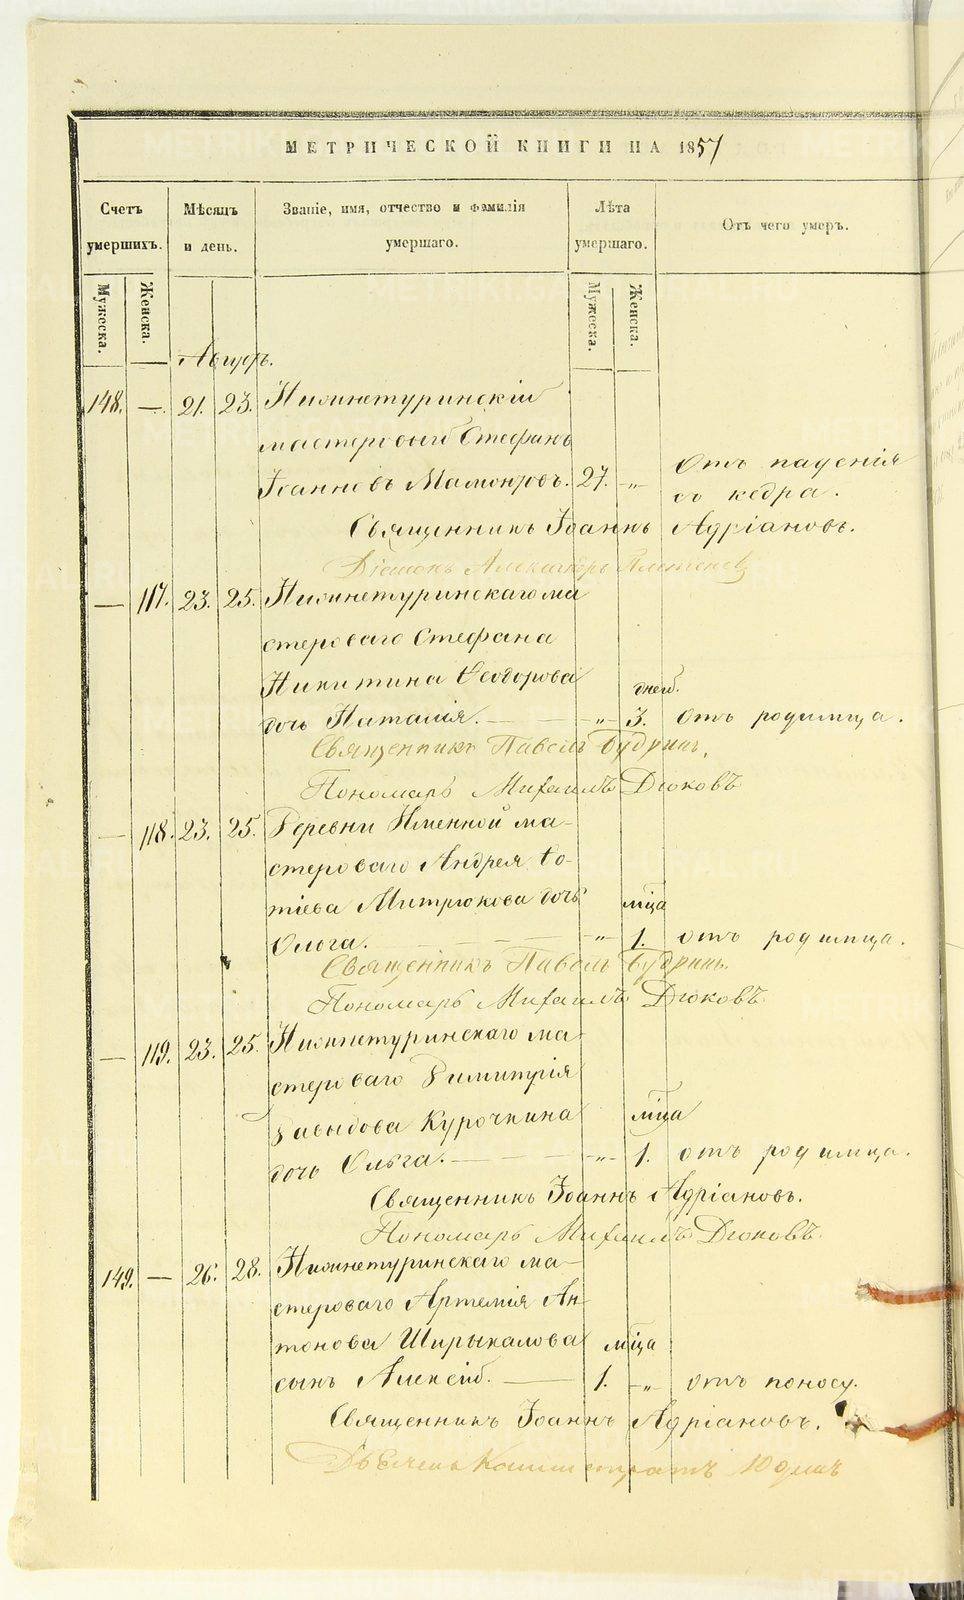 МЕТРИЧЕСКОЙ КНИГИ НА 1857
Счетъ умершихъ.
Мѣсяцъ и день.
Званіе, имя, отчество и фамилія умершаго.
Лѣта умершаго.
Отъ чего умеръ.
Мужеска.
Женска.
Мужеска.
Женска.
Август.
148. — 21. 23. Нижнетуринскій
мастеровый Стефанъ
Іоанновъ Мамонтовъ. 27. „ Отъ паденія
со кедра.
Священникъ Іоаннъ Адріановъ.
Діаконъ Александръ
— 117. 23. 25. Нижнетуринскаго ма
стероваго Стефана
Никитина Ѳеодорова
дней.
дочь Наталія. — — „ 3. Отъ родимца.
Священникъ Павелъ Будринъ.
Пономарь Михаилъ Дюковъ
— 118. 23. 25. Деревни Именной ма-
стероваго Андрея Ѳо-
тіева Митрюкова дочь
мца
Ольга. — — — „ 1. отъ родимца.
Священникъ Павелъ Будринъ.
Пономарь Михаилъ Дюковъ
— 119. 23. 25. Нижнетуринскаго ма-
стероваго Димитрія
Давыдова Курочкина
мца
дочь Ольга. — — — „ 1. отъ родимца.
Священникъ Іоаннъ Адріановъ.
Пономарь Михаилъ Дюковъ.
149. — 26. 28. Нижнетуринскаго ма-
стероваго Артемія Ан
тонова Ширыкалова
мца
сынъ Алексій. — 1. „ отъ поносу.
Священникъ Іоаннъ Адріановъ.